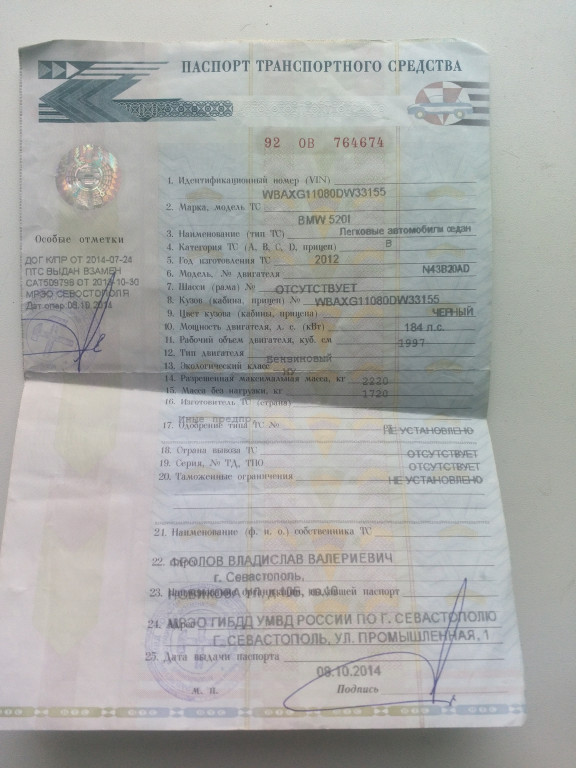 ПАСПОРТ ТРАНСПОРТНОГО СРЕДСТВА
92 ОВ 764674
1. Идентификационный номер (VIN) WBAXG11080DW33155
2. Марка, модель ТС BMW 520I
3. Наименование (тип ТС) Легковые автомобили седан
4. Категория ТС (A, B, C, D, прицеп) B
5. Год изготовления ТС 2012
6. Модель, № двигателя N43B20AD
7. Шасси (рама) № ОТСУТСТВУЕТ
8. Кузов (кабина, прицеп) № WBAXG11080DW33155
9. Цвет кузова (кабины, прицепа) ЧЕРНЫЙ
10. Мощность двигателя, л. с. (кВт) 184 л.с.
11. Рабочий объем двигателя, куб. см 1997
12. Тип двигателя Бензиновый
13. Экологический класс
14. Разрешенная максимальная масса, кг 2220
15. Масса без нагрузки, кг 1720
16. Изготовитель ТС (страна)
предпр.
17. Одобрение типа ТС № НЕ УСТАНОВЛЕНО
18. Страна вывоза ТС ОТСУТСТВУЕТ
19. Серия, № ТД, ТПО ОТСУТСТВУЕТ
20. Таможенные ограничения НЕ УСТАНОВЛЕНО
Особые отметки
ДОГ К/ПР ОТ 2014-07-24
ПТС ВЫДАН ВЗАМЕН
МРЭО СЕВОСТОПОЛЯ
Дат.опер.
21. Наименование (ф. и. о.) собственника ТС
22. ФРОЛОВ ВЛАДИСЛАВ ВАЛЕРИЕВИЧ
г. Севастополь,
23. выдавшей паспорт
24. МРЭО ГИБДД УМВД РОССИИ ПО Г. СЕВАСТОПОЛЮ
Г. СЕВАСТОПОЛЬ, УЛ. ПРОМЫШЛЕННАЯ, 1
25. Дата выдачи паспорта
08.10.2014
м. п. Подпись